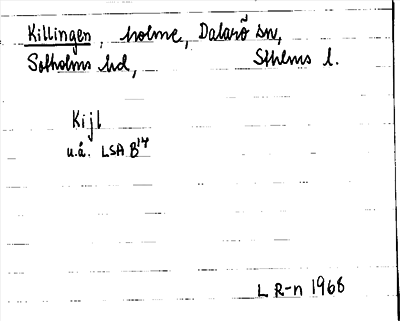 Killingen, holme, Dalarö sn,
Sotholms hd, Sthlms l.
Kijl
u.å. LSA B 14
L R-n 1968